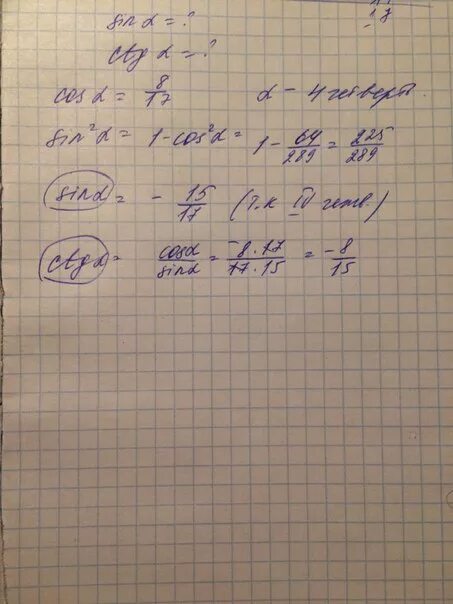 sin α = ?
ctg α = ?
cos α = 8/17 α – 4 четверть.
sin²α = 1-cos²α = 1 - 64/289 = 225/289
sin α = - 15/17 (т.к IV четв.)
ctg α = cosα/sinα = -8·17/17·15 = -8/15